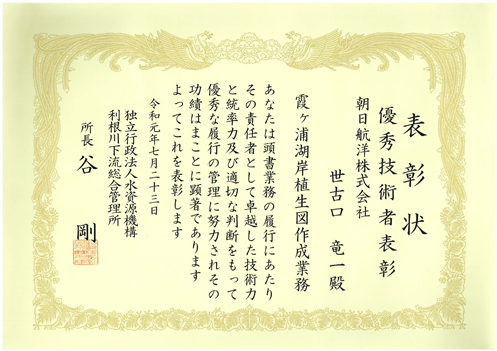 表彰状
優秀技術者表彰
朝日航洋株式会社
世古口 竜一殿
霞ヶ浦湖岸植生図作成業務
あなたは頭書業務の履行にあたり
その責任者として卓越した技術力
と統率力及び適切な判断をもって
優秀な履行の管理に努力されその
功績はまことに顕著であります
よってこれを表彰します
令和元年七月二十三日
独立行政法人水資源機構
利根川下流総合管理所
所長 谷 剛